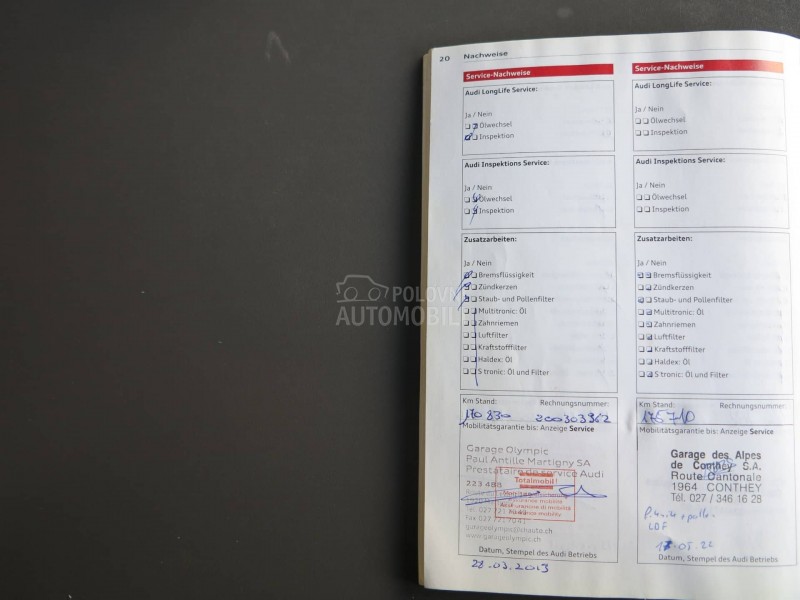 20 Nachweise
Service-Nachweise
Audi LongLife Service:
Ja / Nein
Ölwechsel
Inspektion
Audi Inspektions Service:
Ja / Nein
Ölwechsel
Inspektion
Zusatzarbeiten:
Ja / Nein
Bremsflüssigkeit
Zündkerzen
Staub- und Pollenfilter
Multitronic: Öl
Zahnriemen
Luftfilter
Kraftstofffilter
Haldex: Öl
S tronic: Öl und Filter
Km Stand: Rechnungsnummer:
170 830 200303962
Mobilitätsgarantie bis: Anzeige Service
Garage Olympic
Paul Antille Martigny SA
Prestataire de service Audi
223 488
Totalmobil!
www.garageolympic.ch
Datum, Stempel des Audi Betriebs
28.03.2013
Service-Nachweise
Audi LongLife Service:
Ja / Nein
Ölwechsel
Inspektion
Audi Inspektions Service:
Ja / Nein
Ölwechsel
Inspektion
Zusatzarbeiten:
Ja / Nein
Bremsflüssigkeit
Zündkerzen
Staub- und Pollenfilter
Multitronic: Öl
Zahnriemen
Luftfilter
Kraftstofffilter
Haldex: Öl
S tronic: Öl und Filter
Km Stand: Rechnungsnummer:
175710
Mobilitätsgarantie bis: Anzeige Service
Garage des Alpes
de Conthey S.A.
Route Cantonale
1964 CONTHEY
Tél. 027 / 346 16 28
Datum, Stempel des Audi Betriebs
POLOVNI
AUTOMOBILI